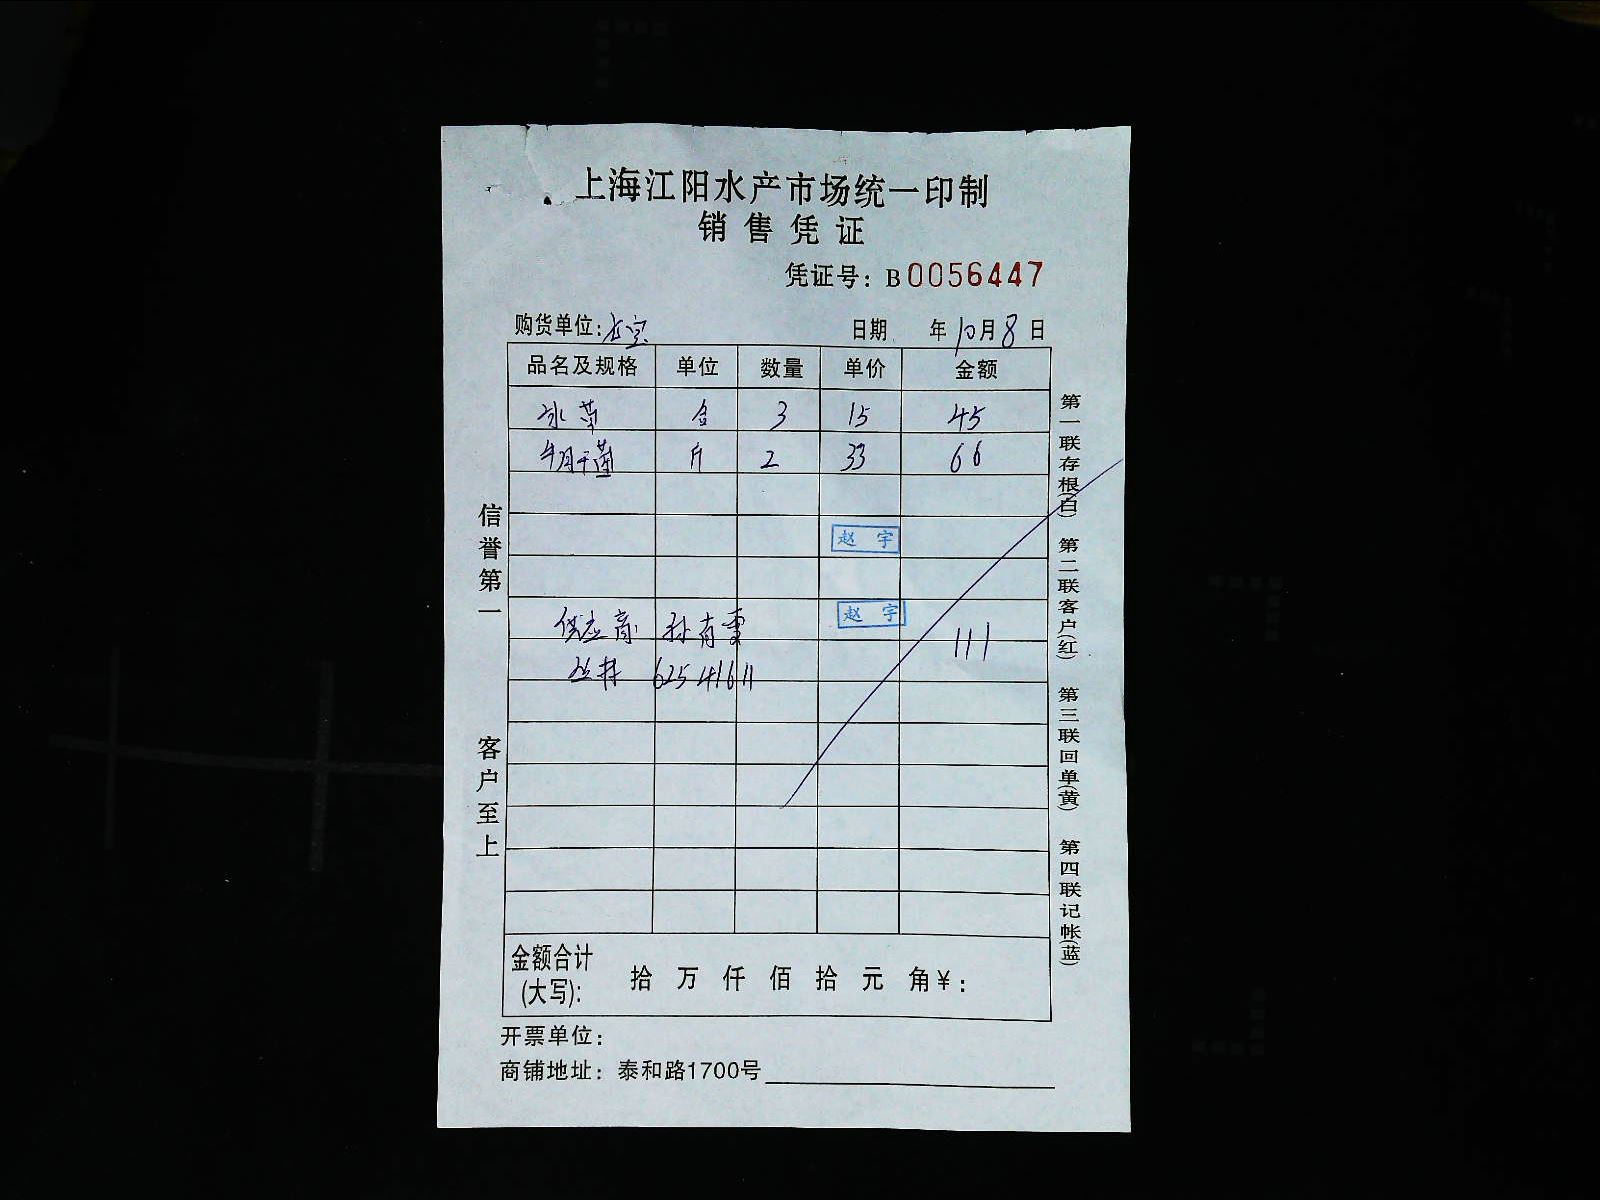 上海江阳水产市场统一印制
销售凭证
凭证号：B0056447
购货单位：
日期 年10月8日
品名及规格 单位 数量 单价 金额
冰草 合 3 15 45
斤 2 33 66
赵宇
赵宇
供应商 孙有
丛林 62541611
111
金额合计(大写)： 拾 万 仟 佰 拾 元 角￥：
开票单位：
商铺地址：泰和路1700号
信誉第一 客户至上
第一联存根(白) 第二联客户(红) 第三联回单(黄) 第四联记帐(蓝)